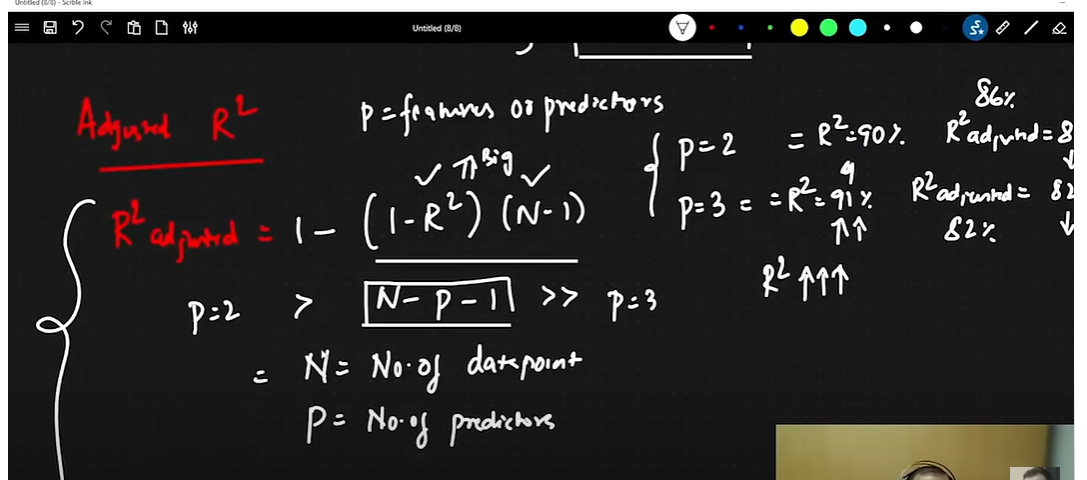 Untitled (8/8) - Scrble Ink
Untitled (8/8)
Adjusted R²
P = features or predictors
Big
R² adjusted = 1 - (1-R²) (N-1)
P=2 > N-P-1 >> P=3
= N = No. of datapoint
P = No. of predictors
86%
P=2 = R²=90% R² adjusted = 8
9
P=3 = = R²=91% R² adjusted = 82
82%
R² ↑↑↑